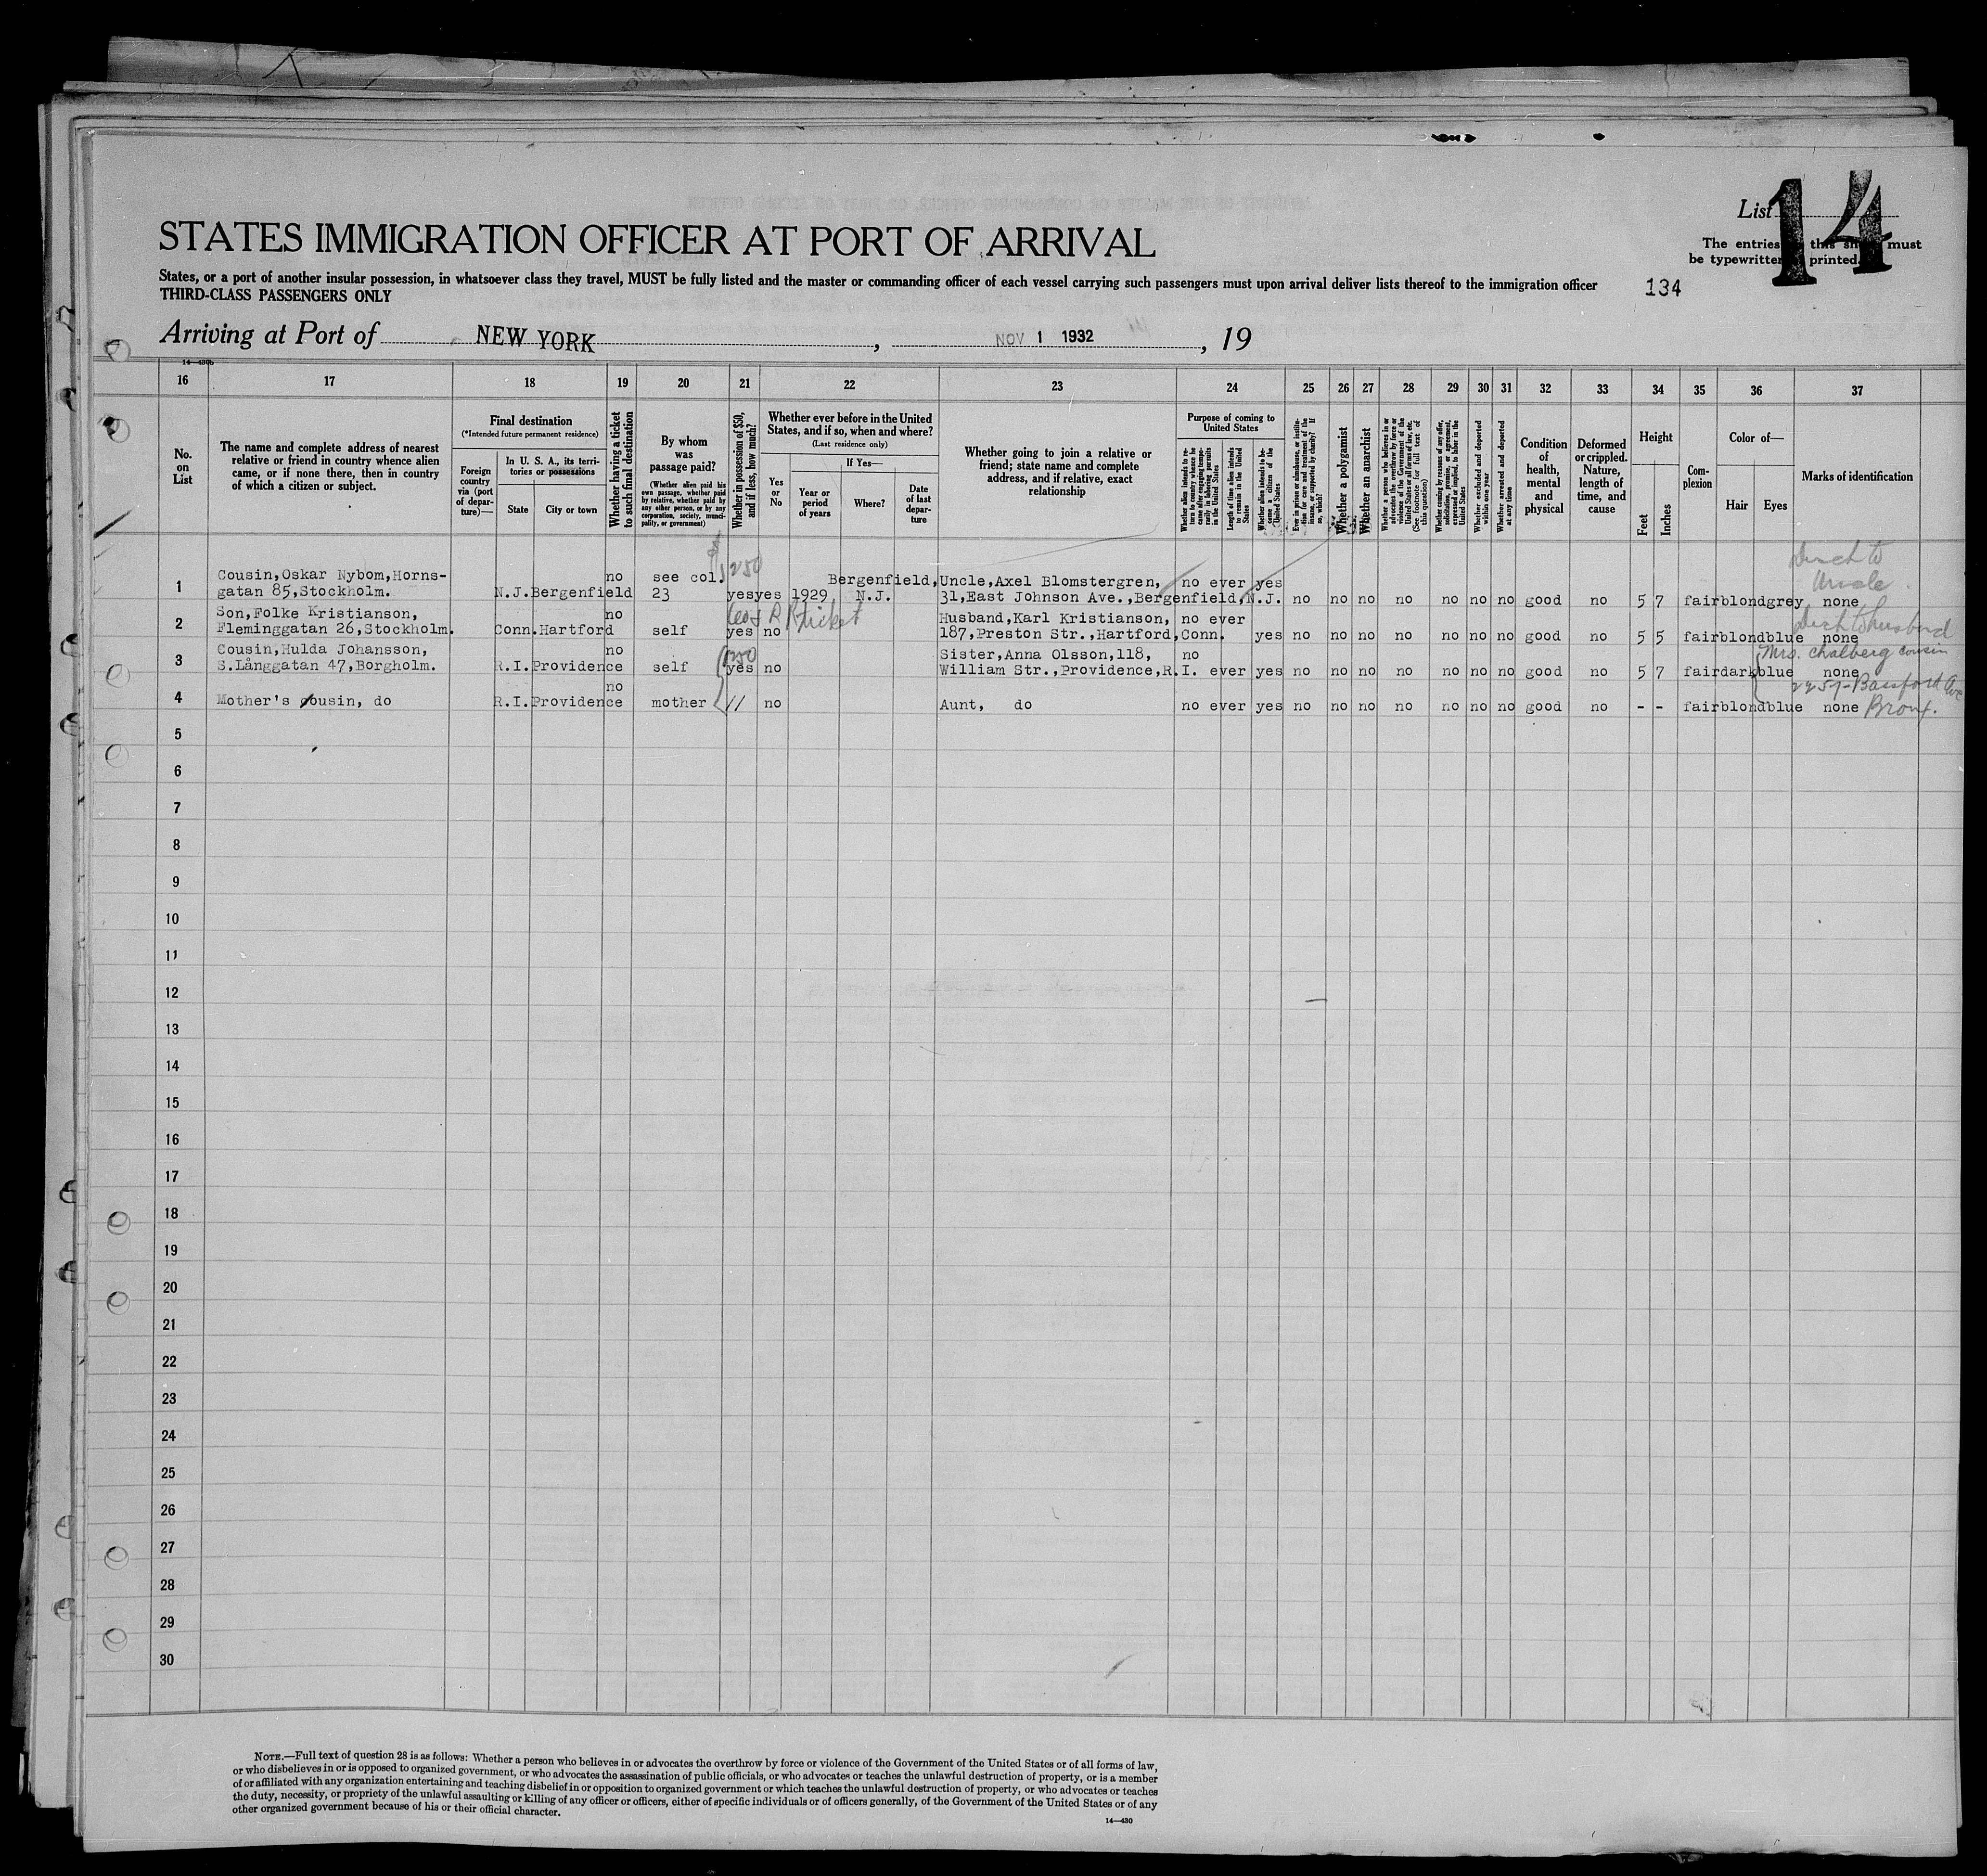 List 14
The entries this must
be typewritten printed.
STATES IMMIGRATION OFFICER AT PORT OF ARRIVAL
States, or a port of another insular possession, in whatsoever class they travel, MUST be fully listed and the master or commanding officer of each vessel carrying such passengers must upon arrival deliver lists thereof to the immigration officer
THIRD-CLASS PASSENGERS ONLY
134
Arriving at Port of NEW YORK, NOV 1 1932, 19
14—430b
16 17 18 19 20 21 22 23 24 25 26 27 28 29 30 31 32 33 34 35 36 37
No.
on
List
The name and complete address of nearest
relative or friend in country whence alien
came, or if none there, then in country
of which a citizen or subject.
Final destination
(*Intended future permanent residence)
Foreign
country
via (port
of depar-
ture)—
In U. S. A., its terri-
tories or possessions
State
City or town
Whether having a ticket
to such final destination
By whom
was
passage paid?
(Whether alien paid his
own passage, whether paid
by relative, whether paid by
any other person, or by any
corporation, society, munici-
pality, or government)
Whether in possession of $50,
and if less, how much?
Whether ever before in the United
States, and if so, when and where?
(Last residence only)
Yes
or
No
If Yes—
Year or
period
of years
Where?
Date
of last
depar-
ture
Whether going to join a relative or
friend; state name and complete
address, and if relative, exact
relationship
Purpose of coming to
United States
Whether alien intends to re-
turn to country whence he
came after engaging tempo-
rarily in laboring pursuits
in the United States
Length of time alien intends
to remain in the United
States
Whether alien intends to be-
come a citizen of the
United States
Ever in prison or almshouse, or institu-
tion for care and treatment of the
insane, or supported by charity? If
so, which?
Whether a polygamist
Whether an anarchist
Whether a person who believes in or
advocates the overthrow by force or
violence of the Government of the
United States or all forms of law, etc.
(See footnote for full text of
this question)
Whether coming by reasons of any offer,
solicitation, promise, or agreement,
expressed or implied, to labor in the
United States
Whether excluded and deported
within one year
Whether arrested and deported
at any time
Condition
of
health,
mental
and
physical
Deformed
or crippled.
Nature,
length of
time, and
cause
Height
Feet
Inches
Com-
plexion
Color of—
Hair
Eyes
Marks of identification
250
Disch to
Uncle
Cousin,Oskar Nybom,Horns- no see col. Bergenfield,Uncle,Axel Blomstergren, no ever yes
1 gatan 85,Stockholm. N.J.Bergenfield 23 yes yes 1929 N.J. 31,East Johnson Ave.,Bergenfield,N.J. no no no no no no no good no 5 7 fair blond grey none
Disch to husband
Son,Folke Kristianson, no Husband,Karl Kristianson, no ever
2 Fleminggatan 26,Stockholm. Conn.Hartford self yes no 187,Preston Str.,Hartford,Conn. yes no no no no no no no good no 5 5 fair blond blue none
250
Mrs. Chalberg cousin
Cousin,Hulda Johansson, no Sister,Anna Olsson,118, no
3 S.Långgatan 47,Borgholm. R.I.Providence self yes no William Str.,Providence,R.I. ever yes no no no no no no no good no 5 7 fair dark blue none
2257-Bassford Ave
no
4 Mother's cousin, do R.I.Providence mother 11 no Aunt, do no ever yes no no no no no no no good no - - fair blond blue none Bronx.
5
6
7
8
9
10
11
12
13
14
15
16
17
18
19
20
21
22
23
24
25
26
27
28
29
30
NOTE.—Full text of question 28 is as follows: Whether a person who believes in or advocates the overthrow by force or violence of the Government of the United States or of all forms of law,
or who disbelieves in or is opposed to organized government, or who advocates the assassination of public officials, or who advocates or teaches the unlawful destruction of property, or is a member
of or affiliated with any organization entertaining and teaching disbelief in or opposition to organized government or which teaches the unlawful destruction of property, or who advocates or teaches
the duty, necessity, or propriety of the unlawful assaulting or killing of any officer or officers, either of specific individuals or of officers generally, of the Government of the United States or of any
other organized government because of his or their official character.
14—430